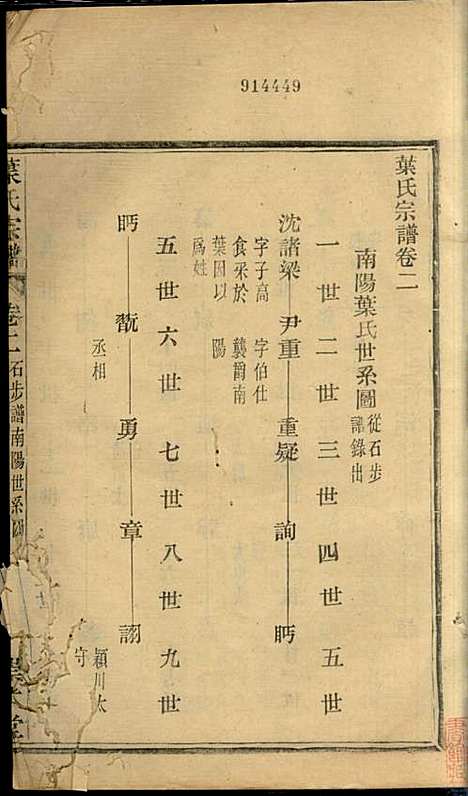 914449
葉氏宗譜卷二
南陽葉氏世系圖 從石步
譜錄出
一世 二世 三世 四世 五世
沈諸梁 尹重 重疑 詢 眄
字子高 字伯仕
食采於 襲爵南
葉因以 陽
爲姓
五世 六世 七世 八世 九世
眄 翫 勇 章 詡
丞相
潁川太
守
葉氏宗譜 卷二 石步譜南陽世系圖